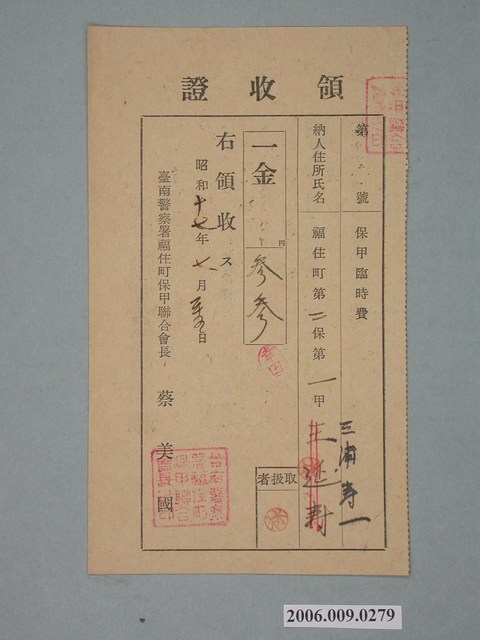 領收證
第 號 保甲臨時費
納人住所氏名 福住町第二保第一甲
三浦寿一
王延壽
一金 円 參參
右領收ス
昭和十七年七月 日
臺南警察署福住町保甲聯合會長 蔡美國
取扱者
2006.009.0279